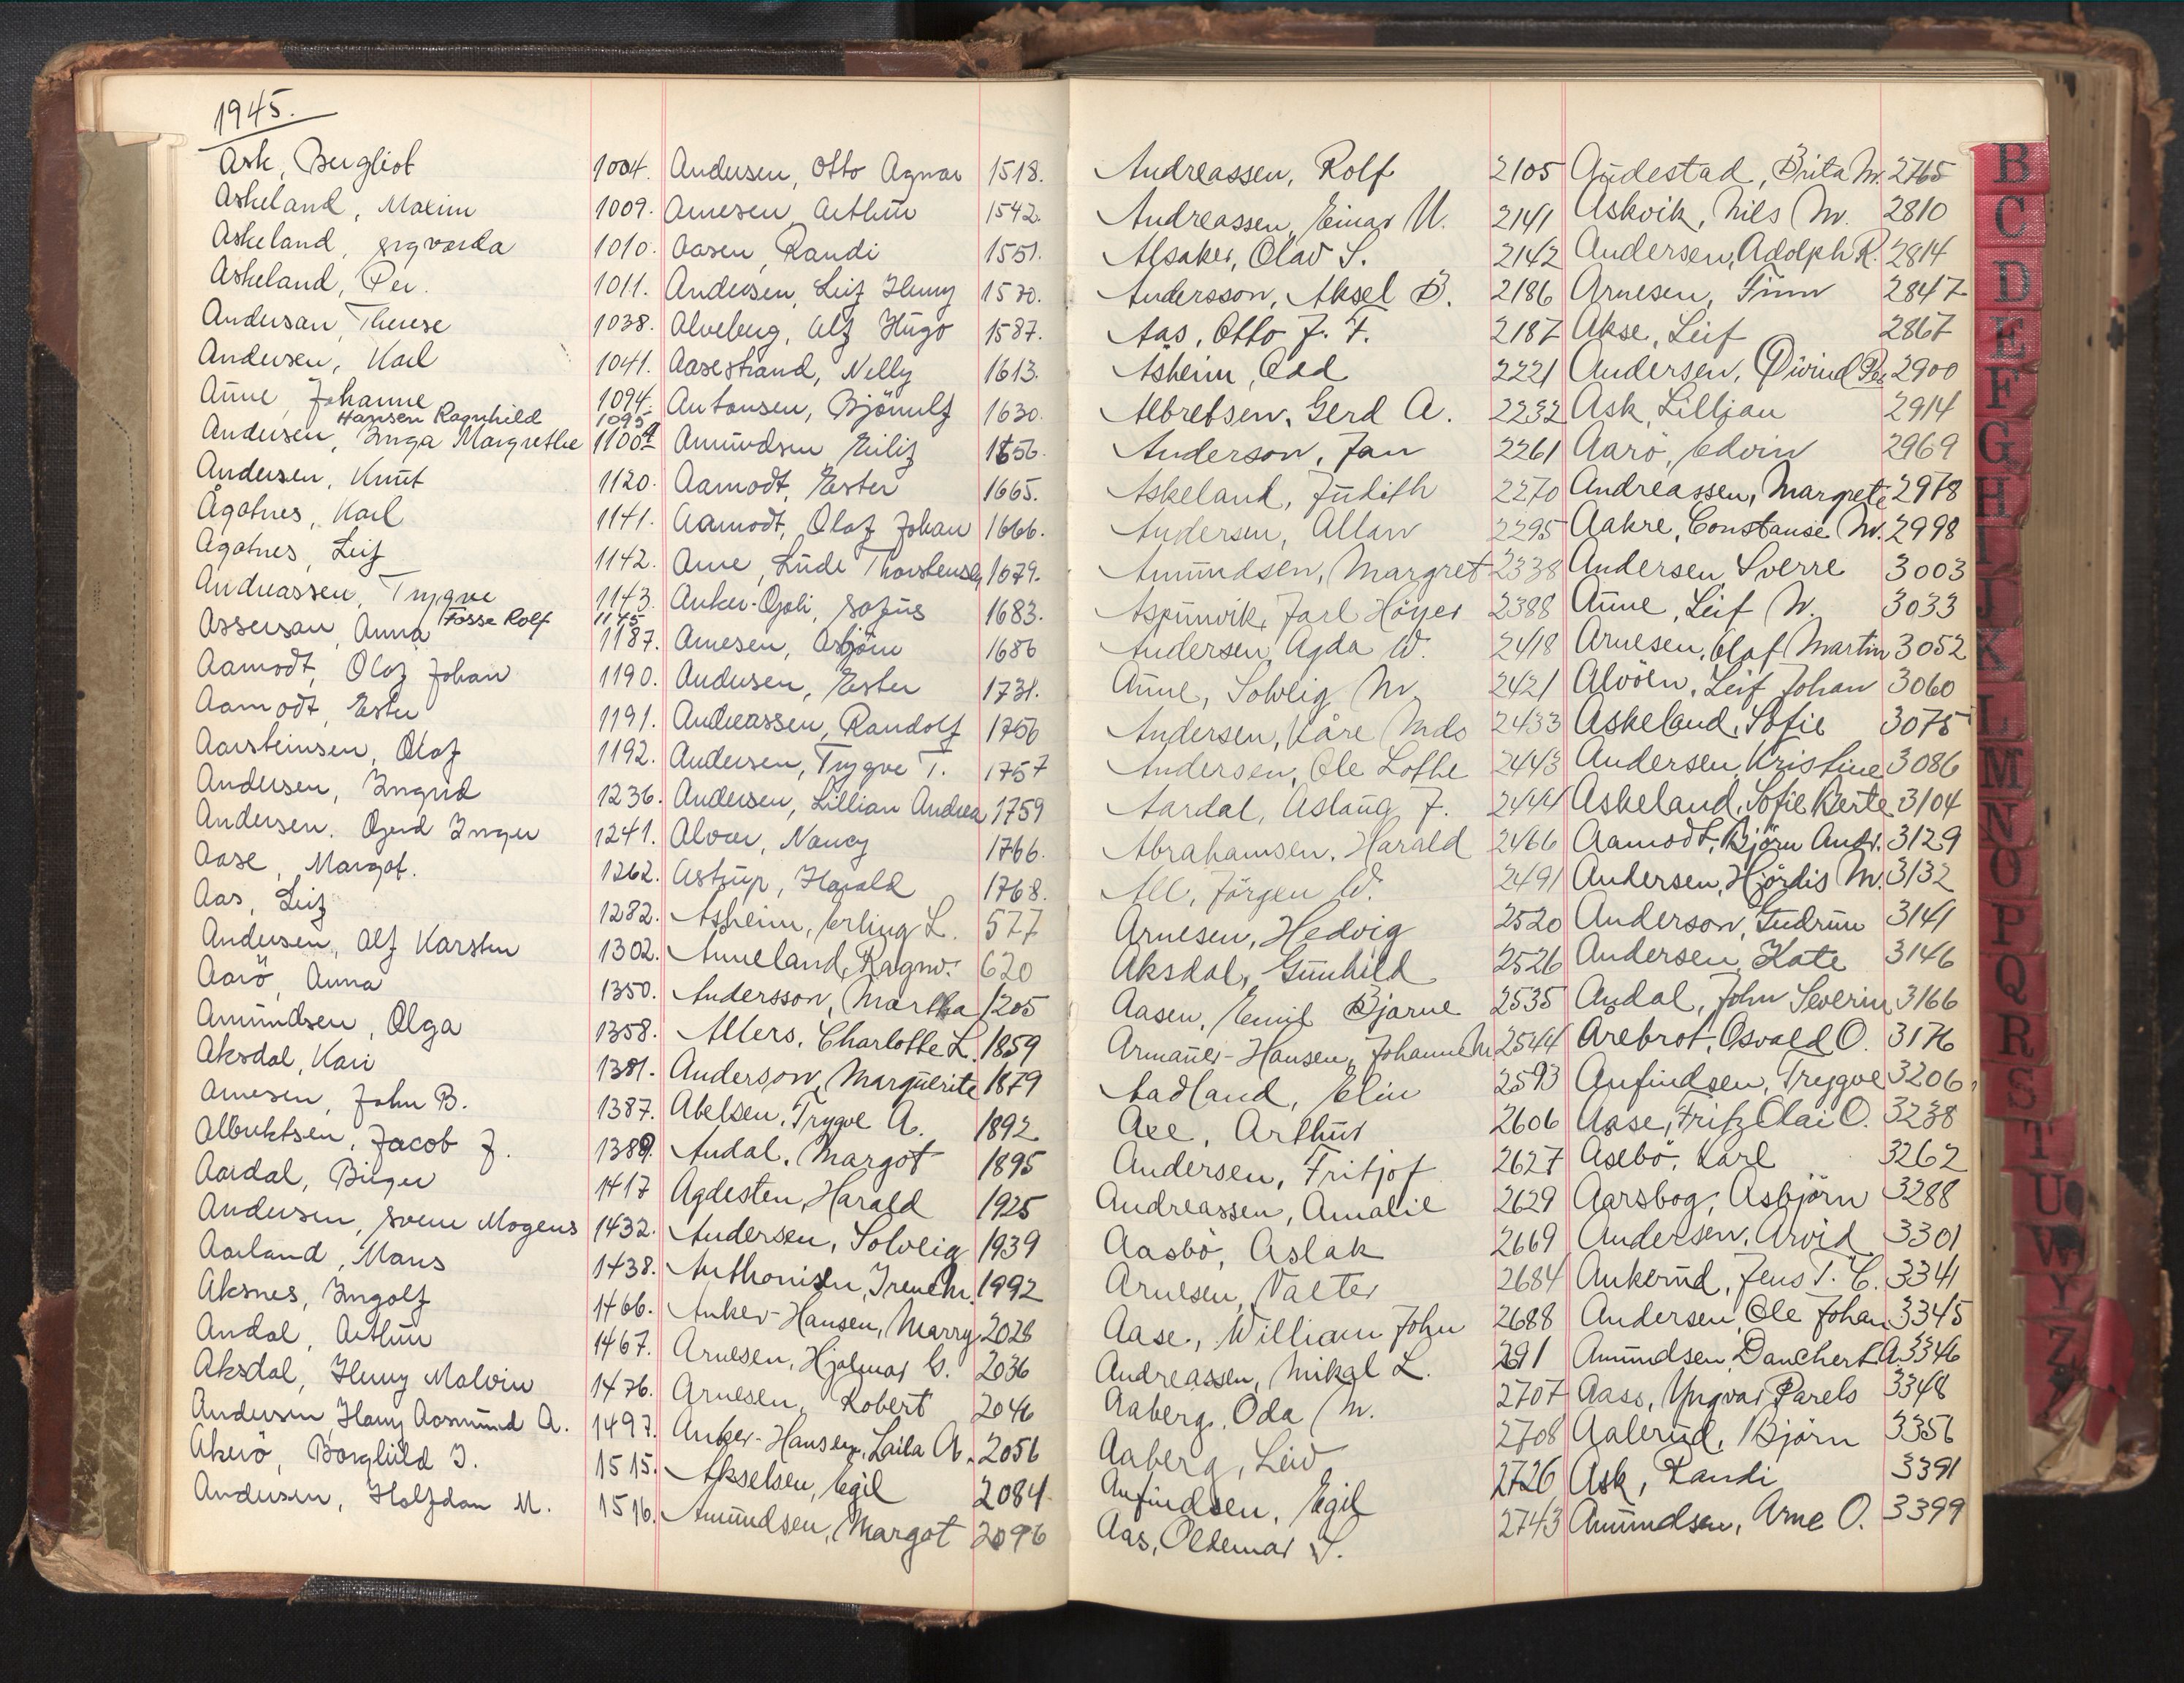 1945.
Ask, Bergliot 1004.
Askeland, Maxim 1009.
Askeland, Sigvarda 1010.
Askeland, Per. 1011.
Andersan, Therese 1038.
Andersen, Karl 1041.
Aune, Johanne 1094.
Hansen Ragnhild 1095
Andersen, Inga Margrethe 1100
Andersen, Knut 1120.
Ågotnes, Karl 1141.
Ågotnes, Leif 1142.
Andreassen, Trygve 1143.
Fosse Rolf 1145
Asserson, Anna 1187.
Aamodt, Olaf Johan 1190.
Aamodt, Ester 1191.
Aarsteinsen, Olaf 1192.
Andersen, Ingrid 1236.
Andersen. Gerd Inger 1241.
Aase, Margot. 1262.
Aas, Leif 1282.
Andersen, Alf Karsten 1302.
Aarö, Anna 1350.
Amundsen, Olga 1358.
Aksdal, Kari 1381.
Arnesen, John B. 1387.
Albrektsen, Jacob J. 1389.
Aardal, Birger 1417
Andersen, Svenn Mogens 1432.
Aarland, Mons 1438.
Aksnes, Ingolf 1466.
Andal, Arthur 1467.
Aksdal, Henny Malvin 1476.
Andersen, Harry Aasmund A. 1497.
Akerö, Borghild I. 1515.
Andersen, Halfdan M. 1516.
Andersen, Otto Agnar 1518.
Arnesen, Arthur 1542.
Aasen, Randi 1551.
Andersen, Leif Henry 1570.
Alveberg, Alf Hugo 1587.
Aasestrand, Nelly 1613.
Antonsen, Björnulf 1630.
Amundsen Eilif 1656.
Aamodt, Ester 1665.
Aamodt, Olaf Johan 1666.
Arne, Lude Thorstensen 1679.
Anker-Goli, Sofus 1683.
Arnesen, Asbjörn 1686
Andersen, Ester 1731.
Andreassen, Randolf 1756
Andersen, Trygve T. 1757
Andersen, Lillian Andrea 1759
Alver, Nancy 1766.
Astrup, Harald 1768.
Åsheim, Erling L. 577
Anneland, Ragnv. 620
Andersson, Martha 1205
Allers, Charlotte L. 1859
Anderson, Marguerite 1879
Abelsen, Trygve A. 1892
Andal, Margot 1895
Agdesten, Harald 1925
Andersen, Solveig 1939
Anthonisen, Irene M. 1992
Anker-Hansen, Marry 2028
Arnesen, Hjalmar G. 2036
Arnesen, Robert 2046
Anker-Hansen, Laila A. 2056
Akselsen, Egil 2084
Amundsen, Margot 2096
Andreassen, Rolf 2105
Andreassen, Einar U. 2141
Alsaker, Olav S. 2142
Andersson, Aksel B. 2186
Aas, Otto J. F. 2187
Åsheim, Odd 2221
Albretsen, Gerd A. 2232
Anderson, Jan 2261
Askeland, Judith 2270
Andersen, Allan 2295
Amundsen, Margret 2338
Aspunvik, Jarl Höyer 2388
Andersen, Agda W. 2418
Aune, Solveig M. 2421
Andersen, Kåre Mds 2433
Andersen, Ole Lothe 2443
Aardal, Aslaug J. 2444
Abrahamsen, Harald 2466
All, Jörgen W. 2491
Arnesen, Hedvig 2520
Aksdal, Gunhild 2526
Aasen, Emil Bjarne 2535
Armauer-Hansen, Johanne M 2544
Aadland, Elin 2593
Axe, Arthur 2606
Andersen, Fritjof 2627
Andreassen, Amalie 2629
Aasbö, Aslak 2669
Arnesen, Valter 2684
Aase, William John 2688
Andreassen, Mikal L. 291
Aaberg, Oda M. 2707
Aaberg, Leiv 2708
Anfindsen, Egil 2726
Aas, Oldemar S. 2743
Audestad, Brita M. 2765
Askvik, Nils M. 2810
Andersen, Adolph R. 2814
Arnesen, Finn 2847
Akse, Leif 2867
Andersen, Öivind Per 2900
Ask, Lilljan 2914
Aarö, Edvin 2969
Andreassen, Margrete 2978
Aakre, Constanse M. 2998
Andersen Sverre 3003
Aune, Leif W. 3033
Arnesen, Olaf Martin 3052
Alvöen, Leif Johan 3060
Askeland, Sofie 3075
Andersen, Kristine 3086
Askeland, Sofie Berte 3104
Aamodt, Björn Andr. 3129
Andersen, Hjördis M. 3132
Anderson, Gudrun 3141
Andersen, Kate 3146
Andal, John Severin 3166
Arebrot, Osvald O. 3176
Anfindsen, Trygve 3206
Aase, Fritz Olai O. 3238
Åsebö, Karl 3262
Aarsbog, Asbjörn 3288
Andersen, Arvid 3301
Ankerud, Jens T. C. 3341
Andersen, Ole Johan 3345
Amundsen, Danchert A. 3346
Aass, Yngvar Parels 3348
Aalerud, Björn 3356
Ask, Randi 3391
Amundsen, Arne O. 3399
B
C
D
E
F
G
H
I
J
K
L
M
N
O
P
Q
R
S
T
U
W
Y
Z